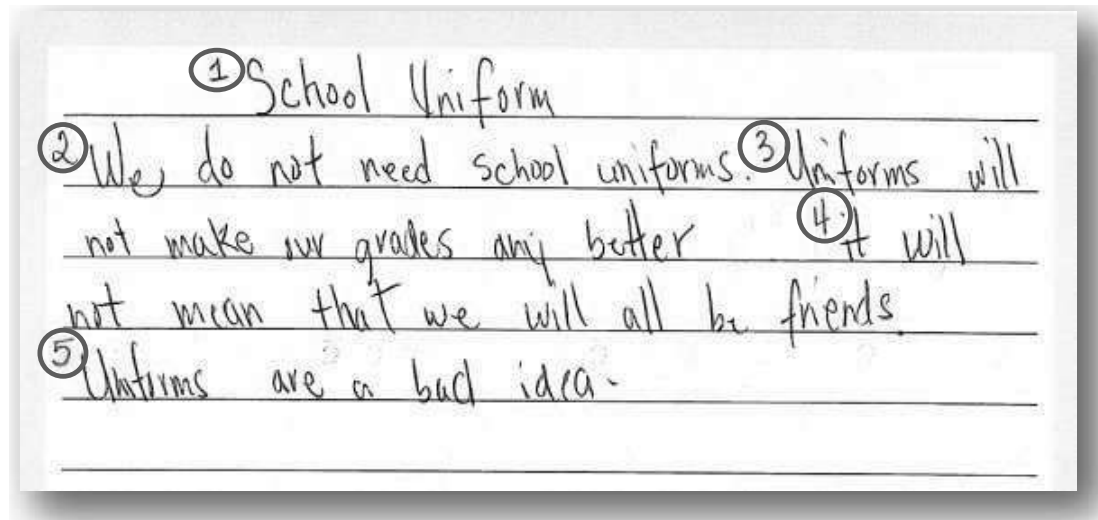 ① School Uniform
② We do not need school uniforms. ③ Uniforms will
not make our grades any better ④ It will
not mean that we will all be friends.
⑤ Uniforms are a bad idea.